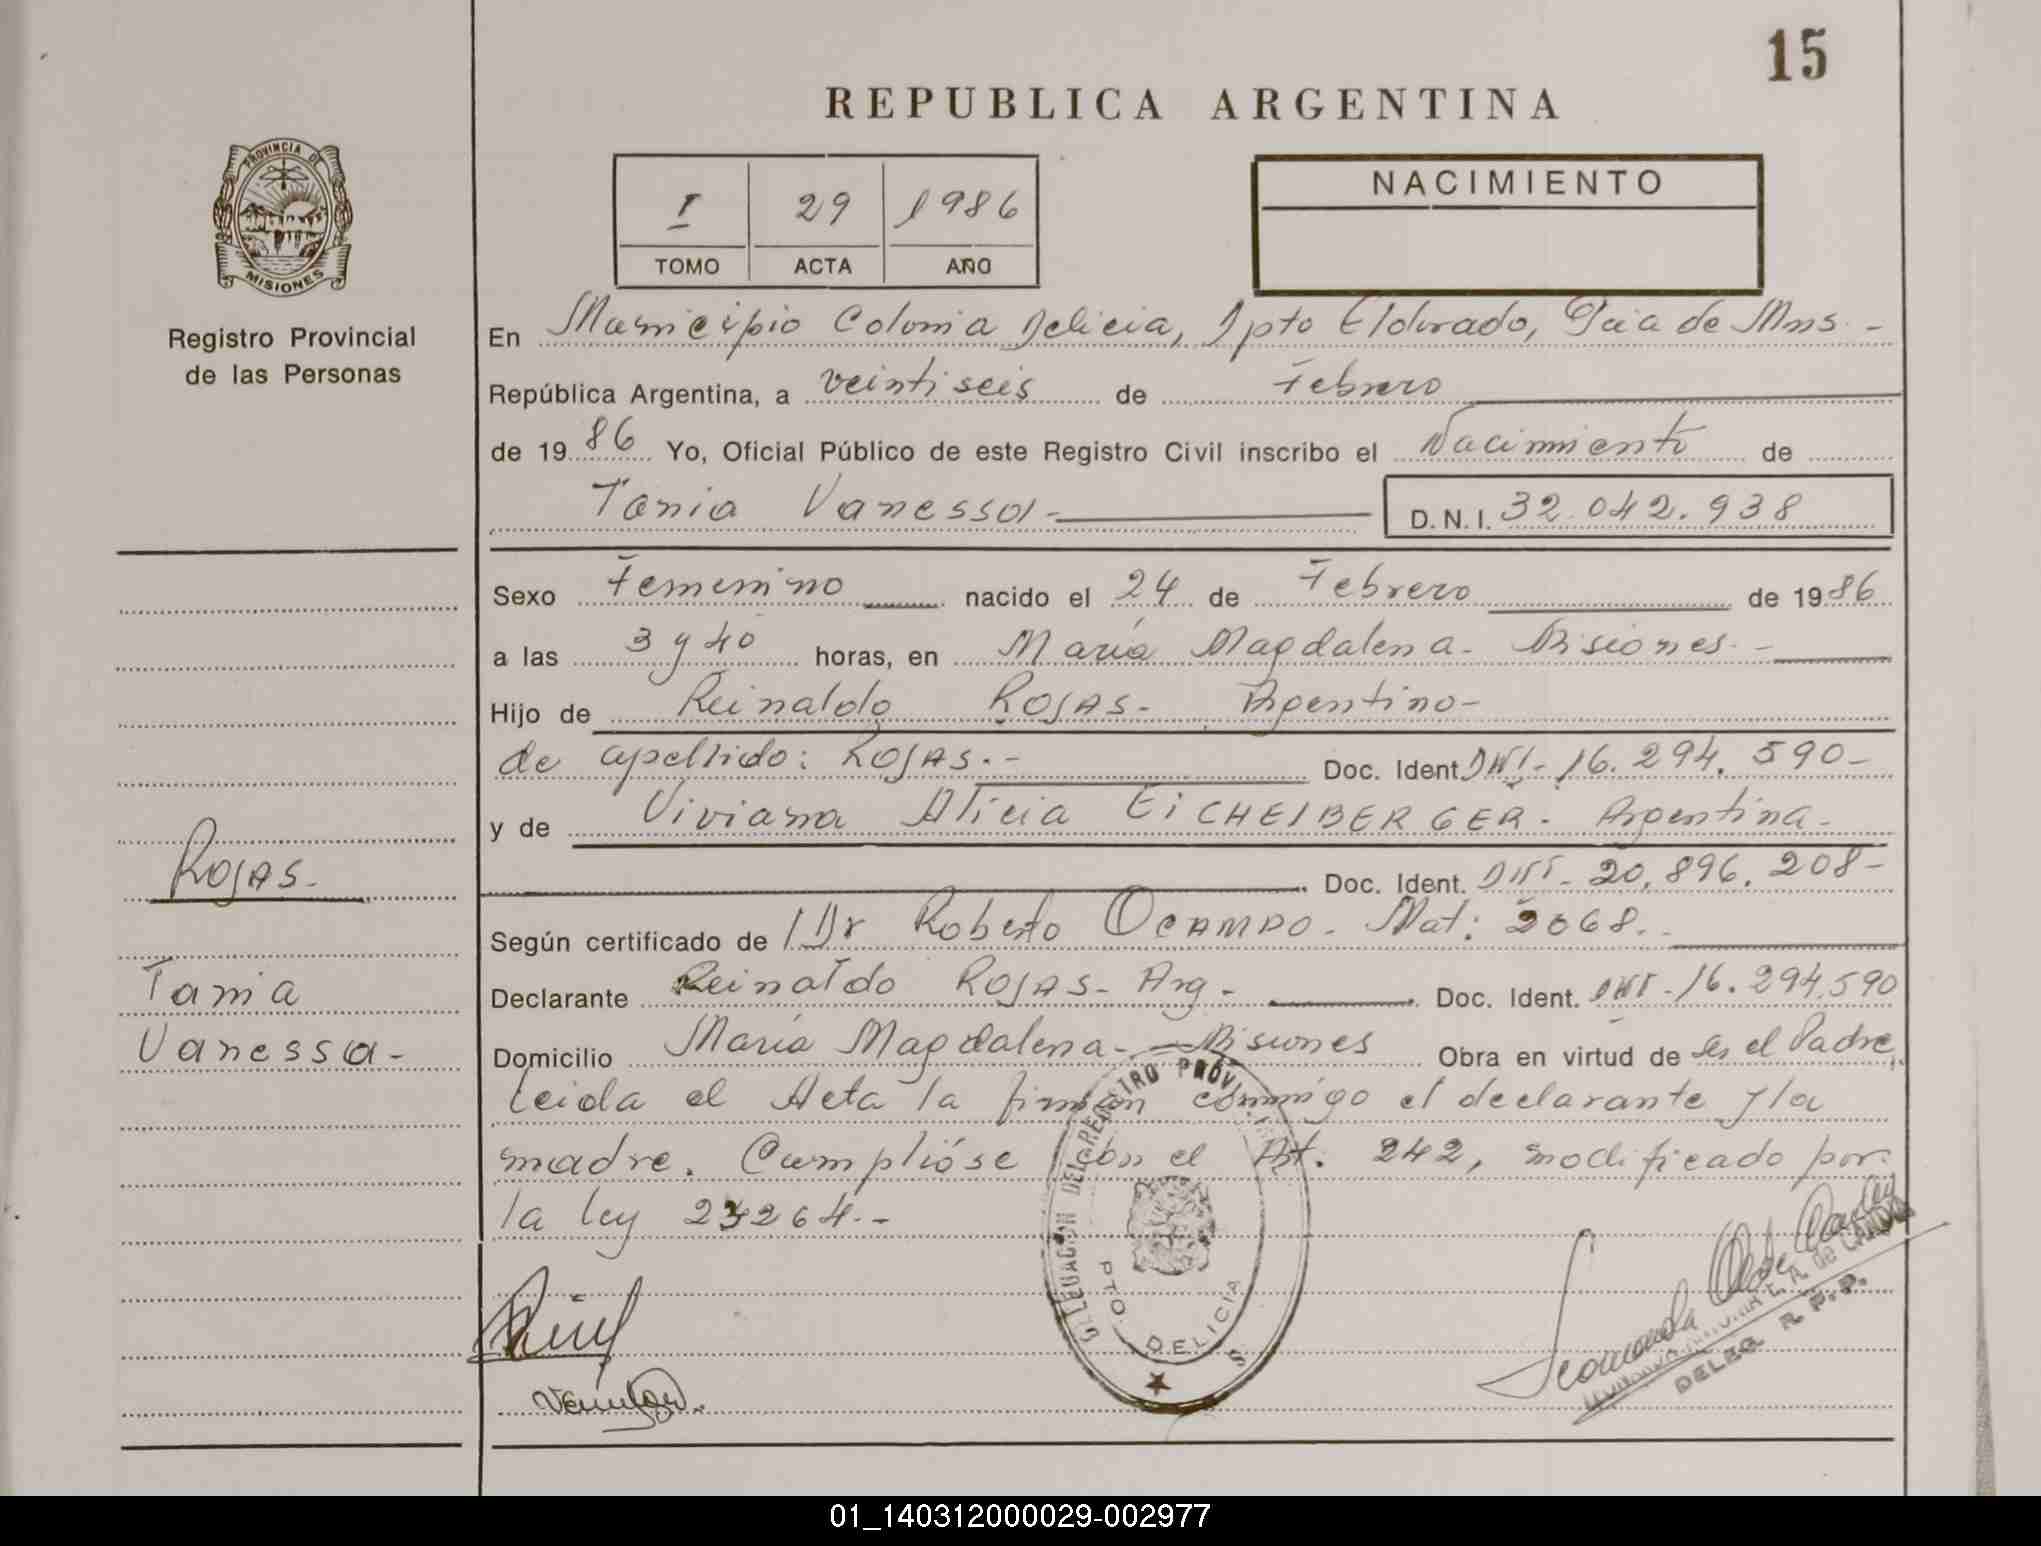 15
REPUBLICA ARGENTINA
PROVINCIA DE
MISIONES
Registro Provincial
de las Personas
I 29 1986
TOMO ACTA AÑO
NACIMIENTO
En Municipio Colonia Delicia, Dpto Eldorado, Pcia de Mns.-
República Argentina, a veintiseis de Febrero
de 1986 Yo, Oficial Público de este Registro Civil inscribo el Nacimiento de
Tania Vanessa- D.N.I. 32.042.938
Sexo Femenino nacido el 24 de Febrero de 1986
a las 3 y 40 horas, en María Magdalena- Misiones.-
Hijo de Reinaldo ROJAS- Argentino-
de apellido: ROJAS.- Doc. Ident DNI- 16.294.590-
y de Viviana Alicia EICHELBERGER- Argentina-
Doc. Ident. DNI- 20.896.208-
Según certificado de Dr Roberto OCAMPO- Mat: 2068.
Declarante Reinaldo ROJAS- Arg- Doc. Ident. DNI-16.294.590
Domicilio María Magdalena- Misiones Obra en virtud de ser el Padre,
Leida el Acta la firman conmigo el declarante y la
madre. Cumplióse con el Art. 242, modificado por
la ley 23264.-
ROJAS-
Tania
Vanessa-
DELEGACION DEL REGISTRO PROVINCIAL
PTO. DELICIA
DELEG. R.P.P.
01_140312000029-002977